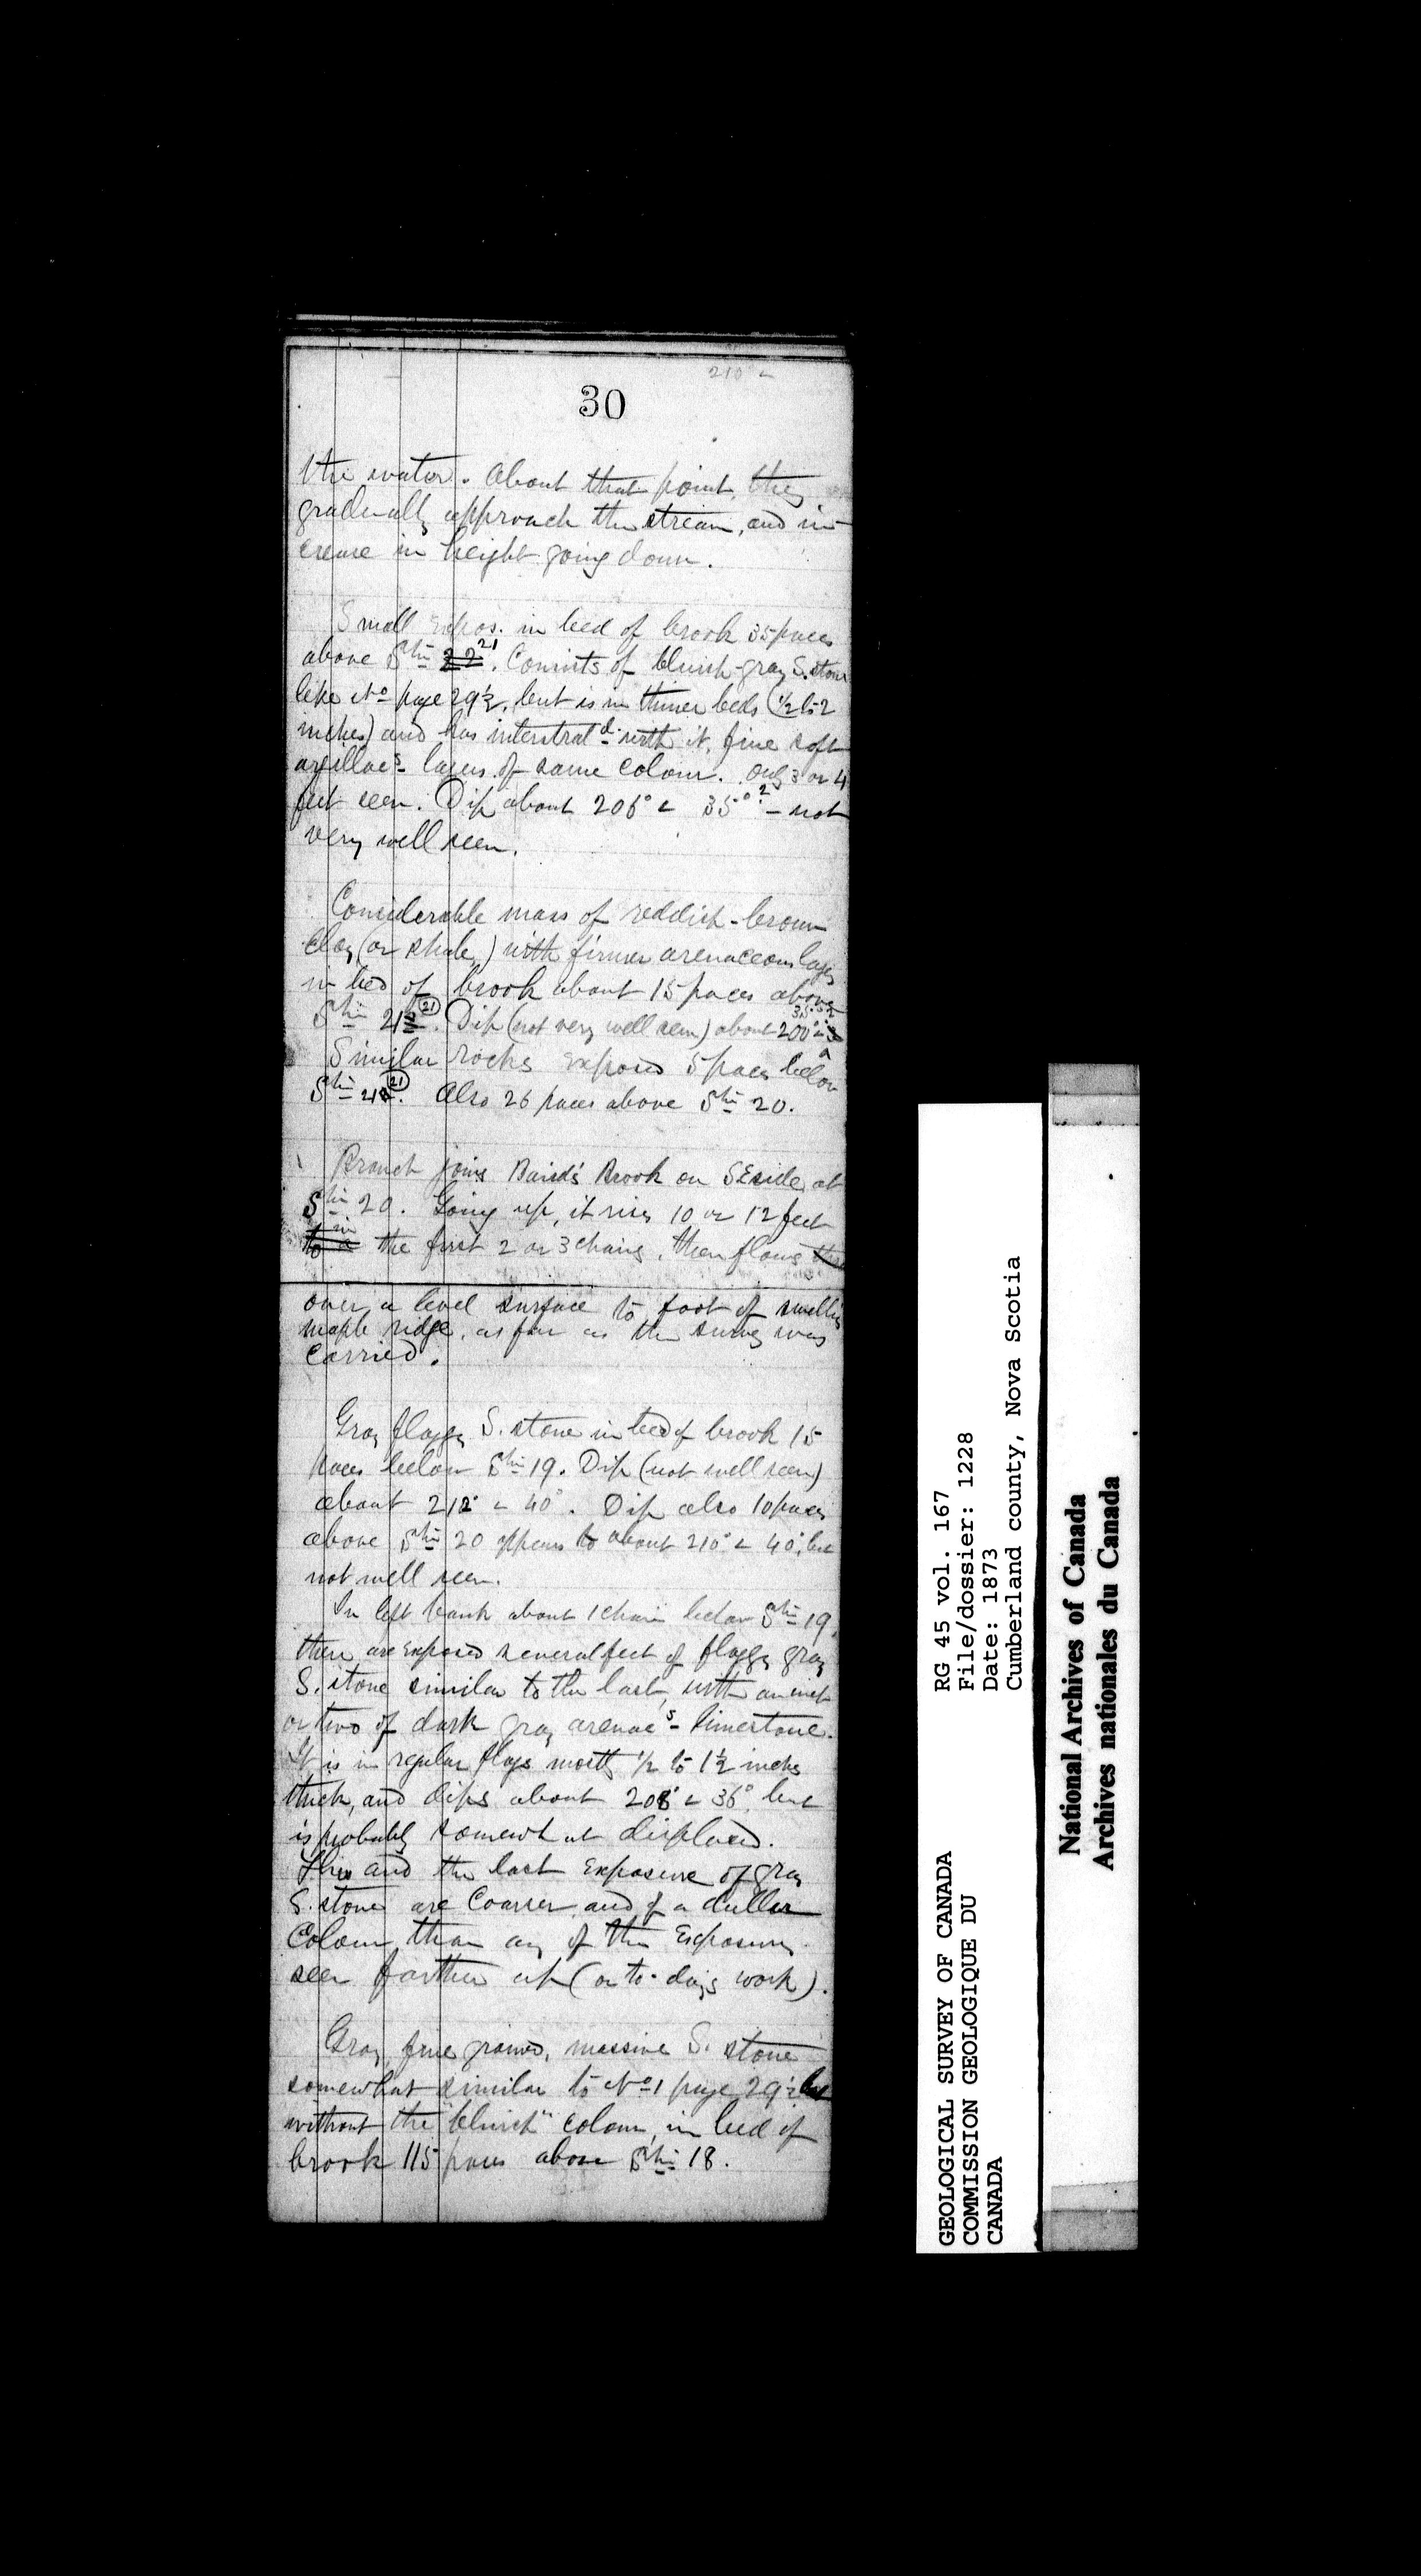 210° ∠
30
the water. About that point, they
gradually approach the stream, and in-
crease in height going down.
Small expos. in bed of brook 35 paces
above Stn 22 21. Consists of bluish-gray S.stone
like No page 29½, but is in thiner beds (½ to 2
inches) and has interstratd with it, fine soft
argillacs layers of same colour. Only 3 or 4
feet seen. Dip about 206° ∠ 35°? - not
very well seen.
Considerable mass of reddish-brown
clay (or shale,) with firmer arenaceous layers
in bed of brook about 15 paces above
Stn 21 (21). Dip (not very well seen) about 200° ∠ 35°
Similar rocks exposed 5 paces below
Stn 21 (21). Also 26 paces above Stn 20.
Branch joins Baird's Brook on SE side at
Stn 20. Going up, it rises 10 or 12 feet
to a in the first 2 or 3 chains, then flows the
over a level surface to foot of swelling
maple ridge, as far as the survey was
carried.
Gray flaggy S. stone in bed of brook 15
paces below Stn 19. Dip (not well seen)
about 212° ∠ 40°. Dip also 10 paces
above Stn 20 appears to about 210° ∠ 40°, but
not well seen.
In left bank about 1 chain below Stn 19,
there are exposed several feet of flaggy gray
S. stone similar to the last, with an inch
or two of dark gray arenacs limestone.
It is in regular flags mostly ½ to 1½ inches
thick, and dips about 208° ∠ 36°, but
is probably somewhat displaced.
This and the last exposure of gray
S. stone are coarser and of a duller
colour than any of the exposures
seen farther up (on to-day's work).
Gray, fine grained, massive S. stone
somewhat similar to No 1 page 29½ but
without the "bluish" colour, in bed of
brook 115 paces above Stn 18.
GEOLOGICAL SURVEY OF CANADA
COMMISSION GEOLOGIQUE DU
CANADA
RG 45 vol. 167
File/dossier: 1228
Date: 1873
Cumberland county, Nova Scotia
National Archives of Canada
Archives nationales du Canada